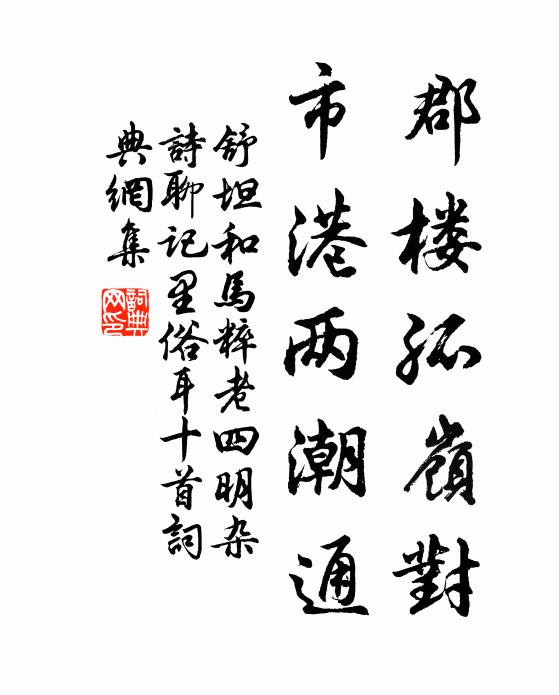 郡楼孤嶺對
市港两潮通
舒坦和馬粹老四明杂
詩聊記里俗耳十首詞
典網集
詞典網印